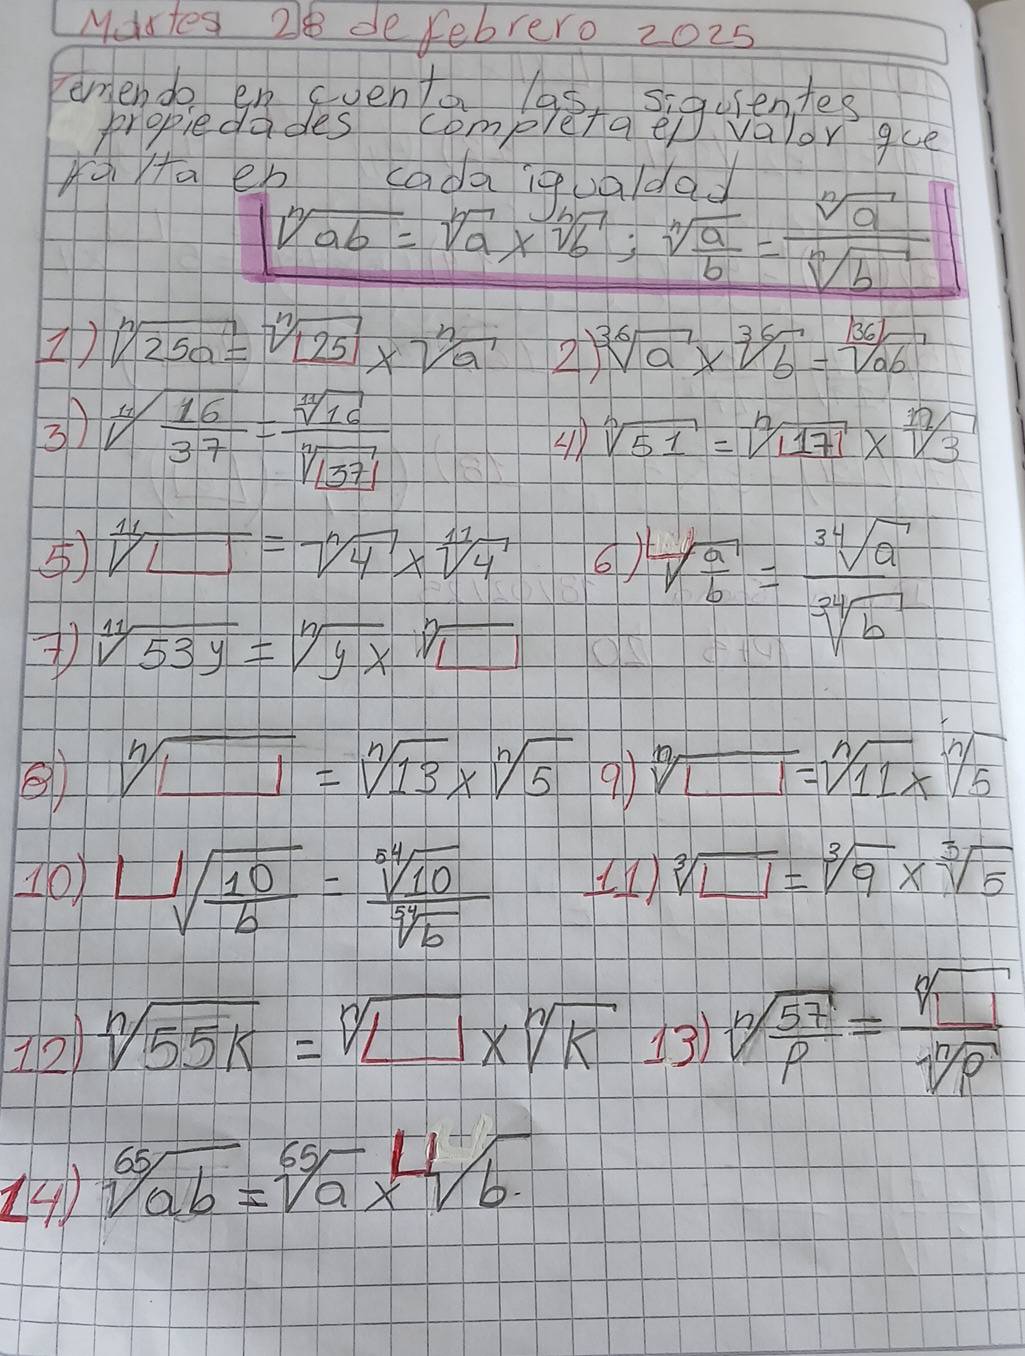 Martes 28 de febrero 2025
Teniendo en cuenta las siguientes
propiedades completa el valor que
falta en cada igualdad
ⁿ√ab = ⁿ√a × ⁿ√b ; ⁿ√(a/b) = ⁿ√a / ⁿ√b
1) ⁿ√25a = ⁿ√25 × ⁿ√a 2) ³⁶√a × ³⁶√b = ³⁶√ab
3) ¹¹√(16/37) = ¹¹√16 / ⁿ√37 4) ⁿ√51 = ⁿ√17 × ⁿ√3
5) ¹¹√□ = ⁿ√4 × ¹¹√4 6) □√(a/b) = ³⁴√a / ³⁴√b
7) ¹¹√53y = ⁿ√y × ⁿ√□
8) ⁿ√□ = ⁿ√13 × ⁿ√5 9) ⁿ√□ = ⁿ√11 × ⁿ√5
10) □√(10/b) = ⁵⁴√10 / ⁵⁴√b 11) ³√□ = ³√9 × ³√5
12) ⁿ√55k = ⁿ√□ × ⁿ√k 13) ⁿ√(57/p) = ⁿ√□ / ⁿ√p
14) ⁶⁵√ab = ⁶⁵√a × □√b.